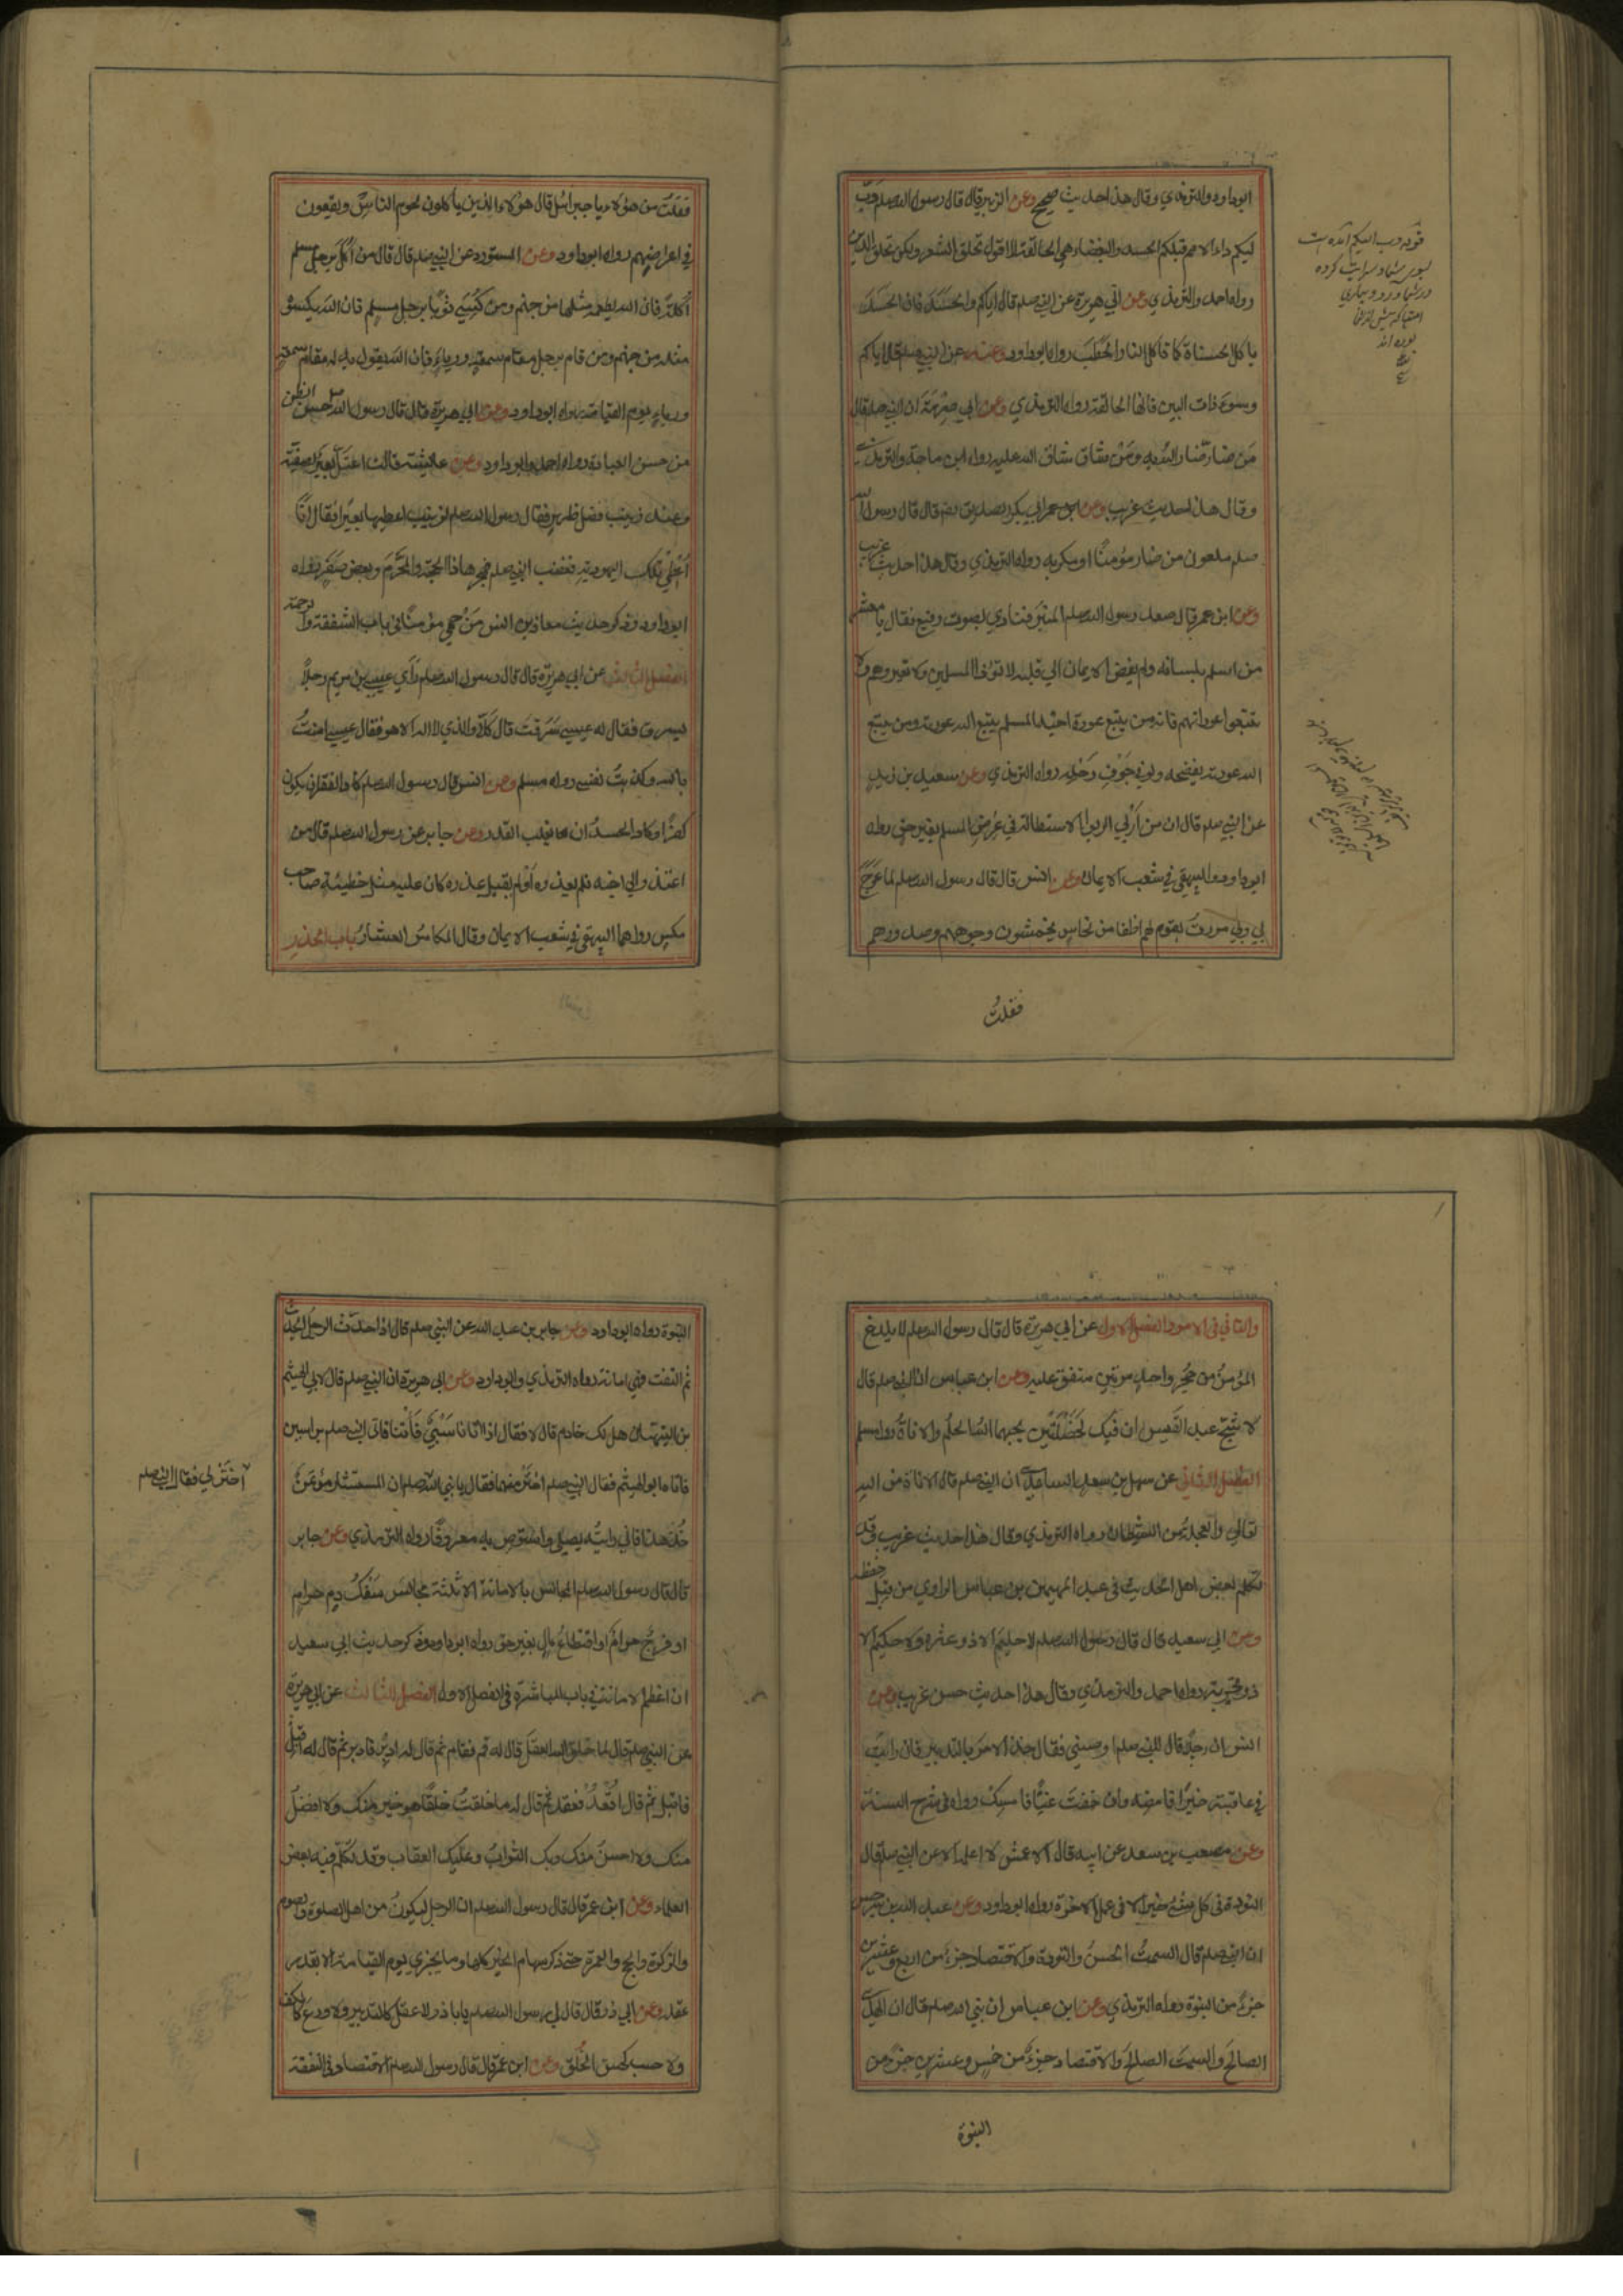 ابوداود والترمذي وقال هذا حديث صحيح وعن الزبير قال قال رسول الله صلعم دب
ليكم داء الامم قبلكم الحسد والبغضاء هي الحالقة لا اقول تحلق الشعر ولكن تحلق الدين
رواه احمد والترمذي وعن ابي هريرة عن النبي صلعم قال اياكم والحسد فان الحسد
ياكل الحسناة كما تاكل النار الحطب رواه ابوداود وعنه عن النبي صلعم قال اياكم
وسوء ذات البين فانها الحالقة رواه الترمذي وعن ابي صرمة ان النبي صلعم قال
من ضار ضار الله به ومن شاق شاق الله عليه رواه ابن ماجة والترمذي
وقال هذا حديث غريب وعن ابي بكر الصديق رضه قال قال رسول الله
صلعم ملعون من ضار مؤمنا او مكر به رواه الترمذي وقال هذا حديث غريب
وعن ابن عمر قال صعد رسول الله صلعم المنبر فنادي بصوت رفيع فقال يا معشر
من اسلم بلسانه ولم يفض الايمان الي قلبه لا توذوا المسلمين ولا تعيروهم ولا
تتبعوا عوراتهم فانه من يتبع عورة اخيه المسلم يتبع الله عورته ومن يتبع
الله عورته يفضحه ولو في جوف رحله رواه الترمذي وعن سعيد بن زيد
عن النبي صلعم قال ان من اربي الربوا الاستطالة في عرض المسلم بغير حق رواه
ابوداود والبيهقي في شعب الايمان وعن انس قال قال رسول الله صلعم لما عرج
بي ربي مررت بقوم لهم اظفار من نحاس يخمشون وجوههم وصدورهم
فقلت
فقلت من هؤلاء يا جبرائيل قال هؤلاء الذين ياكلون لحوم الناس ويقعون
في اعراضهم رواه ابوداود وعن المستورد عن النبي صلعم قال قال من اكل برجل مسلم
اكلة فان الله يطعمه مثلها من جهنم ومن كسي ثوبا برجل مسلم فان الله يكسوه
مثله من جهنم ومن قام برجل مقام سمعة ورياء فان الله يقول به له مقام سمعة
ورياء يوم القيامة رواه ابوداود وعن ابي هريرة قال قال رسول الله صلعم حسن الظن
من حسن العبادة رواه احمد وابوداود وعن عايشة قالت اعتل بعير لصفية
وعند زينب فضل ظهر فقال رسول الله صلعم لزينب اعطيها بعيرا فقالت انا
اعطي تلك اليهودية فغضب النبي صلعم فهجرها ذا الحجة والمحرم وبعض صفر رواه
ابوداود وذكر حديث معاذ بن انس من حمي مؤمنا في باب الشفقة والرحمة
الفصل الثالث عن ابي هريرة قال قال رسول الله صلعم رأي عيسي بن مريم رجلا
يسرق فقال له عيسي سرقت قال كلا والذي لا اله الا هو فقال عيسي امنت
بالله وكذبت نفسي رواه مسلم وعن انس قال رسول الله صلعم كاد الفقر ان يكون
كفرا وكاد الحسد ان يغلب القدر وعن جابر عن رسول الله صلعم قال من
اعتذر الي اخيه فلم يعذره او لم يقبل عذره كان عليه مثل خطيئة صاحب
مكس رواهما البيهقي في شعب الايمان وقال المكاس العشار باب الحذر
والتاني في الامور الفصل الاول عن ابي هريرة قال قال رسول الله صلعم لا يلدغ
المؤمن من جحر واحد مرتين متفق عليه وعن ابن عباس ان النبي صلعم قال
لاشج عبد القيس ان فيك لخصلتين يحبهما الله الحلم والاناة رواه مسلم
الفصل الثاني عن سهل بن سعد الساعدي ان النبي صلعم قال الاناة من الله
تعالي والعجلة من الشيطان رواه الترمذي وقال هذا حديث غريب وقد
تكلم بعض اهل الحديث في عبد المهيمن بن عباس الراوي من قبل حفظه
وعن ابي سعيد قال قال رسول الله صلعم لا حليم الا ذو عثرة ولا حكيم الا
ذو تجربة رواه احمد والترمذي وقال هذا حديث حسن غريب وعن
انس ان رجلا قال للنبي صلعم اوصني فقال خذ الامر بالتدبير فان رايت
في عاقبته خيرا فامضه وان خفت غيا فامسك رواه في شرح السنة
وعن مصعب بن سعد عن ابيه قال الاعمش لا اعلمه الا عن النبي صلعم قال
التودة في كل شئ خير الا في عمل الاخرة رواه ابوداود وعن عبد الله بن سرجس
ان النبي صلعم قال السمت الحسن والتودة والاقتصاد جزء من اربع وعشرين
جزء من النبوة رواه الترمذي وعن ابن عباس ان نبي الله صلعم قال ان الهدي
الصالح والسمت الصالح والاقتصاد جزء من خمس وعشرين جزء من
النبوة
النبوة رواه ابوداود وعن جابر بن عبد الله عن النبي صلعم قال اذا حدث الرجل الحديث
ثم التفت فهي امانة رواه الترمذي وابوداود وعن ابي هريرة ان النبي صلعم قال لابي الهيثم
بن التيهان هل لك خادم قال لا فقال اذا اتانا سبي فأتنا فاتي النبي صلعم براسين
فاتاه ابو الهيثم فقال النبي صلعم اختر منهما فقال يا نبي الله صلعم ان المستشار مؤتمن
آختر لي فقال النبي صلعم
خذ هذا فاني رايته يصلي واستوص به معروفا رواه الترمذي وعن جابر
قال قال رسول الله صلعم المجالس بالامانة الا ثلثة مجالس سفك دم حرام
او فرج حرام او اقتطاع مال بغير حق رواه ابوداود وذكر حديث ابي سعيد
ان اعظم الامانة في باب المباشرة في الفصل الاول الفصل الثالث عن ابي هريرة
عن النبي صلعم قال لما خلق الله العقل قال له قم فقام ثم قال له ادبر فادبر ثم قال له اقبل
فاقبل ثم قال له اقعد فقعد ثم قال له ما خلقت خلقا هو خير منك ولا افضل
منك ولا احسن منك وبك الثواب وعليك العقاب وقد تكلم فيه بعض
العلماء وعن ابن عمر قال قال رسول الله صلعم ان الرجل ليكون من اهل الصلوة والصوم
والزكوة والحج والعمرة حتي ذكر سهام الخير كلها وما يجزي يوم القيامة الا بقدر
عقله وعن ابي ذر قال قال لي رسول الله صلعم يابا ذر لا عقل كالتدبير ولا ورع كالكف
ولا حسب كحسن الخلق وعن ابن عمر قال قال رسول الله صلعم الاقتصاد في النفقة